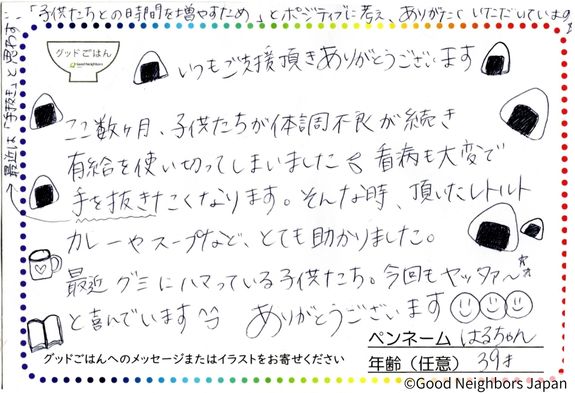 →最近は「手抜き」と思わず…「子供たちとの時間を増やすため」とポジティブに考え、ありがたくいただいています
グッドごはん
Good Neighbors
いつもご支援頂きありがとうございます
ここ数ヶ月、子供たちが体調不良が続き
有給を使い切ってしまいました 看病も大変で
手を抜きたくなります。そんな時、頂いたレトルト
カレーやスープなど、とても助かりました。
最近グミにハマっている子供たち。今回もヤッタァ〜
と喜んでいます ありがとうございます
ペンネーム はるちゃん
グッドごはんへのメッセージまたはイラストをお寄せください
年齢（任意） 39才
©Good Neighbors Japan